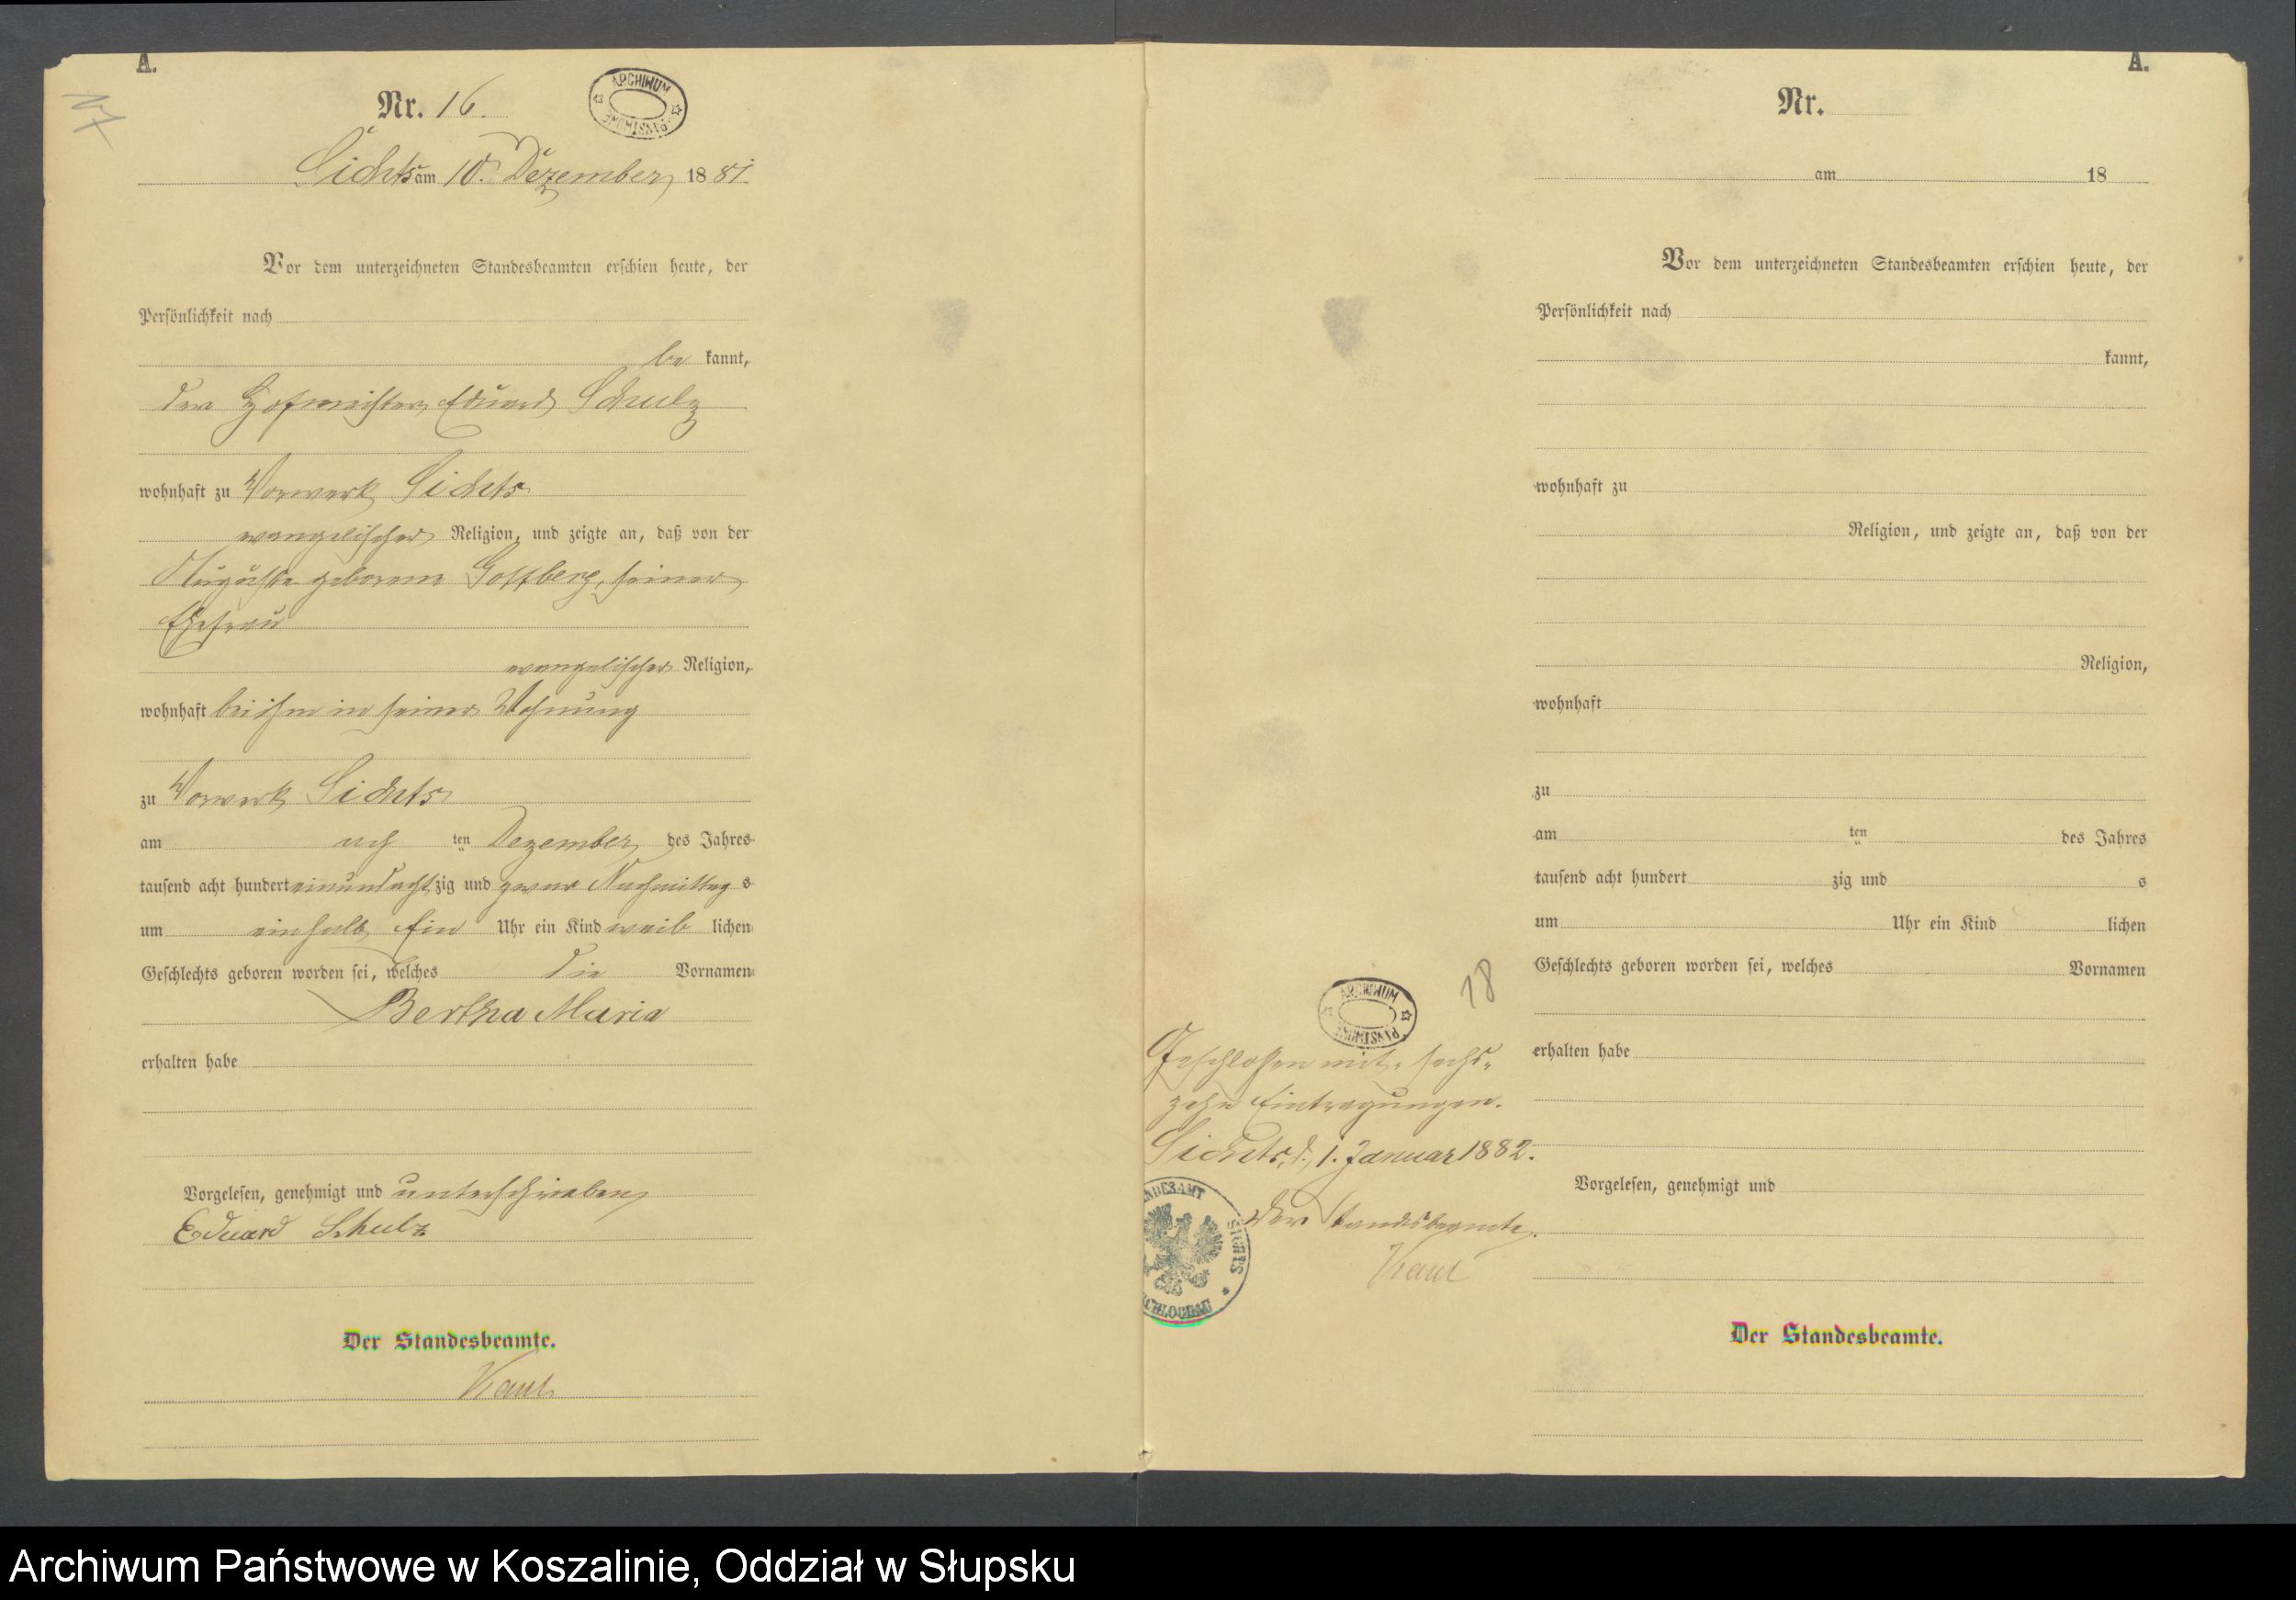 A.
17
Nr. 16.
ARCHIWUM PAŃSTWOWE
Sichts am 10. Dezember 1881.
Vor dem unterzeichneten Standesbeamten erschien heute, der
Persönlichkeit nach
be kannt,
der Hofmeister Eduard Schulz
wohnhaft zu Vorwerk Sichts
evangelischer Religion, und zeigte an, daß von der
Auguste geborene Gottberg, seiner
Ehefrau
evangelischer Religion,
wohnhaft bei ihm in seiner Wohnung
zu Vorwerk Sichts
am ten Dezember des Jahres
tausend acht hundert einundachtzig und zwar Nachmittag s
um einhalb Ein Uhr ein Kind weib lichen
Geschlechts geboren worden sei, welches die Vornamen
Bertha Maria
erhalten habe
Vorgelesen, genehmigt und unterschrieben
Eduard Schulz
Der Standesbeamte.
A.
Nr.
am 18
Vor dem unterzeichneten Standesbeamten erschien heute, der
Persönlichkeit nach
kannt,
wohnhaft zu
Religion, und zeigte an, daß von der
Religion,
wohnhaft
zu
am ten des Jahres
tausend acht hundert zig und s
um Uhr ein Kind lichen
Geschlechts geboren worden sei, welches Vornamen
erhalten habe
Vorgelesen, genehmigt und
Der Standesbeamte.
18
ARCHIWUM PAŃSTWOWE
Geschlossen mit sechs-
zehn Eintragungen.
Sichts, d. 1. Januar 1882.
Der Standesbeamte.
SICHTS
Archiwum Państwowe w Koszalinie, Oddział w Słupsku